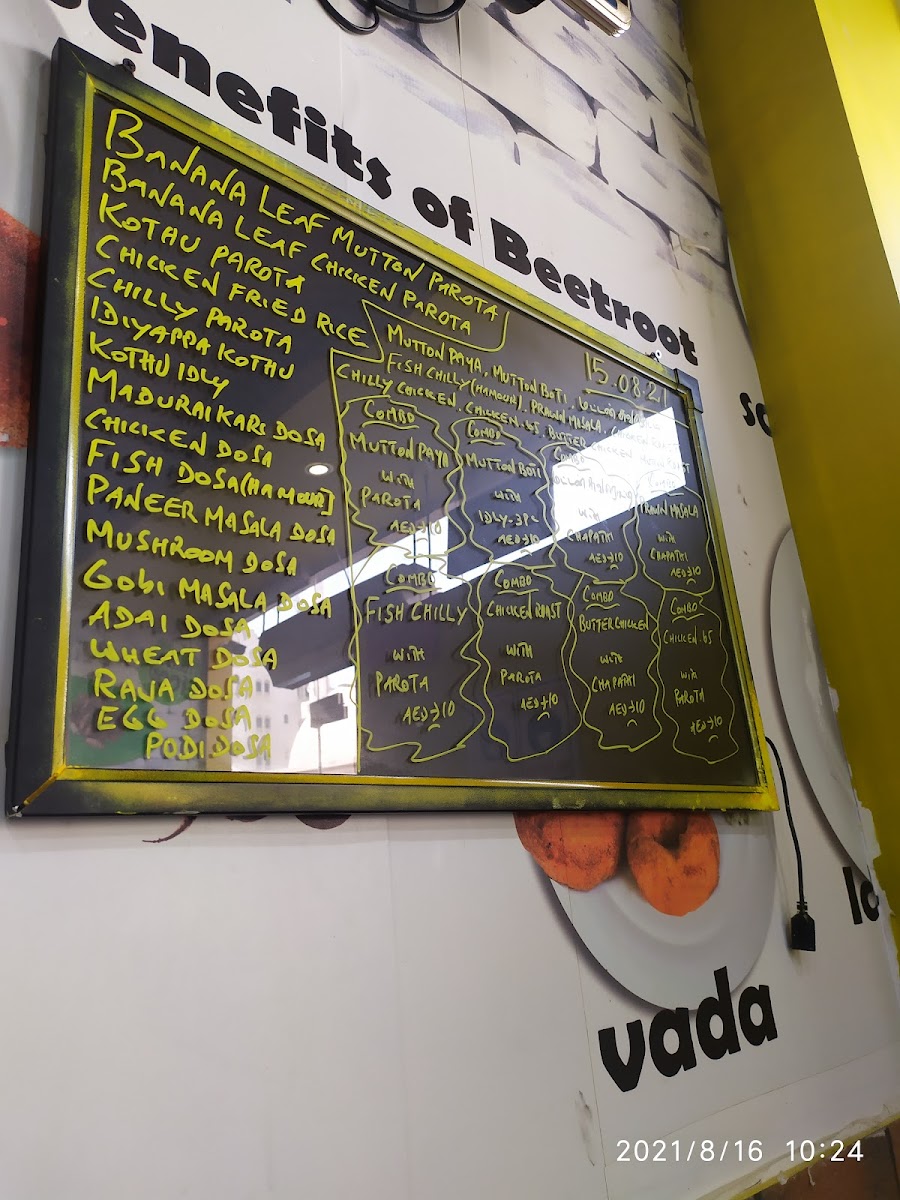 enefits of Beetroot
BANANA LEAF MUTTON PAROTA
BANANA LEAF CHICKEN PAROTA
KOTHU PAROTA
CHICKEN FRIED RICE
CHILLY PAROTA
IDIYAPPA KOTHU
KOTHU IDLY
MADURAIKARI DOSA
CHICKEN DOSA
FISH DOSA(HAMOUR]
PANEER MASALA DOSA
MUSHROOM DOSA
GOBI MASALA DOSA
ADAI DOSA
WHEAT DOSA
RAVA DOSA
EGG DOSA
PODI DOSA
15.08.21
MUTTON PAYA, MUTTON BOTI,
FISH CHILLY(HAMOUR), PRAWN MASALA, CHICKEN ROAST
CHILLY CHICKEN, CHICKEN.65, BUTTER CHICKEN, MUTTON ROAST
COMBO
MUTTON PAYA
WITH
PAROTA
AED→10
COMBO
MUTTON BOTI
WITH
IDLY-3PC
AED→10
COMBO
WITH
CHAPATHI
AED→10
COMBO
PRAWN MASALA
WITH
CHAPATHI
AED→10
COMBO
FISH CHILLY
WITH
PAROTA
AED→10
COMBO
CHICKEN ROAST
WITH
PAROTA
AED→10
COMBO
BUTTER CHICKEN
WITH
CHAPATHI
AED→10
COMBO
CHICKEN.65
WITH
PAROTA
AED→10
vada
2021/8/16 10:24